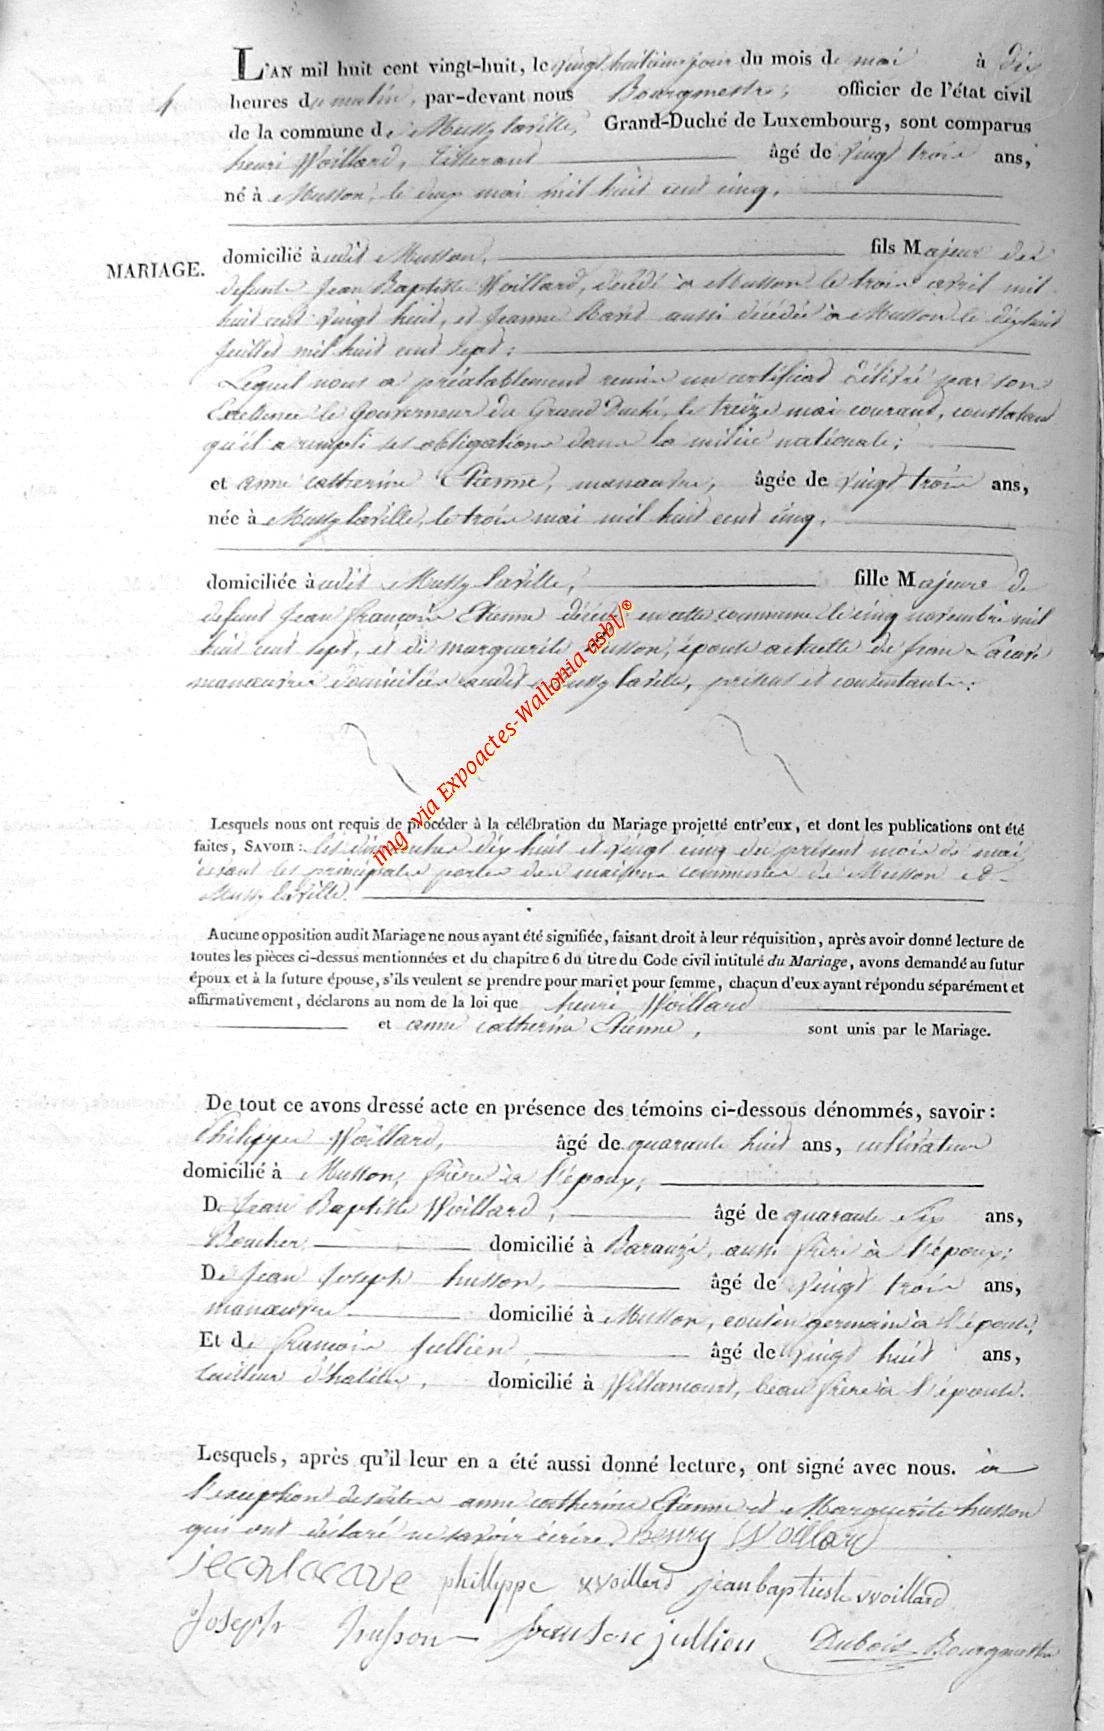 L'AN mil huit cent vingt-huit, le vingt huitième jour du mois de mai à dix
4 heures du matin, par-devant nous Bourgmestre, officier de l'état civil
de la commune de Mussy laville, Grand-Duché de Luxembourg, sont comparus
henri Woillard, tisserand âgé de vingt trois ans,
né à Musson, le deux mai mil huit cent cinq,
MARIAGE.
domicilié audit Musson, fils Majeur des
defunts Jean Baptiste Woillard, décédé à Musson le trois avril mil
huit cent vingt huit, et Jeanne aussi décédée à Musson le dix huit
juillet mil huit cent sept;
Lequel nous a préalablement remis un certificat délivré par son
Excellence le Gouverneur du Grand Duché, le treize mai courant, constatant
qu'il a rempli ses obligations dans la milice nationale;
et anne catherine Etienne, manœuvre, âgée de vingt trois ans,
née à Mussy laville, le trois mai mil huit cent cinq,
domiciliée audit Mussy laville, fille Majeure de
defunt Jean françois Etienne décédé en cette commune le cinq novembre mil
huit cent sept, et de marguerite husson, épouse actuelle de Jean Lacave
manœuvre domiciliés audit Mussy laville, présens et consentants;
img via Expoactes-Wallonia asbl/®
Lesquels nous ont requis de procéder à la célébration du Mariage projetté entr'eux, et dont les publications ont été
faites, SAVOIR: les dimanches dix huit et vingt cinq du présent mois de mai,
devant les principales portes des maisons communes de Musson et
Mussy laville.
Aucune opposition audit Mariage ne nous ayant été signifiée, faisant droit à leur réquisition, après avoir donné lecture de
toutes les pièces ci-dessus mentionnées et du chapitre 6 du titre du Code civil intitulé du Mariage, avons demandé au futur
époux et à la future épouse, s'ils veulent se prendre pour mari et pour femme, chacun d'eux ayant répondu séparément et
affirmativement, déclarons au nom de la loi que henri Woillard
et anne catherine Etienne, sont unis par le Mariage.
De tout ce avons dressé acte en présence des témoins ci-dessous dénommés, savoir:
Philippe Woillard, âgé de quarante huit ans, cultivateur
domicilié à Musson, frère à l'époux;
De Jean Baptiste Woillard, âgé de quarante six ans,
Boucher, domicilié à Baranzi, aussi frère à l'époux;
De Jean Joseph husson, âgé de vingt trois ans,
manœuvre domicilié à Musson, cousin germain à l'épouse;
Et de françois Jullien, âgé de vingt huit ans,
tailleur d'habits, domicilié à Willancourt, beau frère à l'épouse.
Lesquels, après qu'il leur en a été aussi donné lecture, ont signé avec nous. à
l'exception desdites anne catherine Etienne et Marguerite husson
qui ont déclaré ne savoir écrire. henry Woillard
jean lacave phillippe woillard jean baptiste woillard
Joseph husson fransoie jullien Dubois Bourgmestre